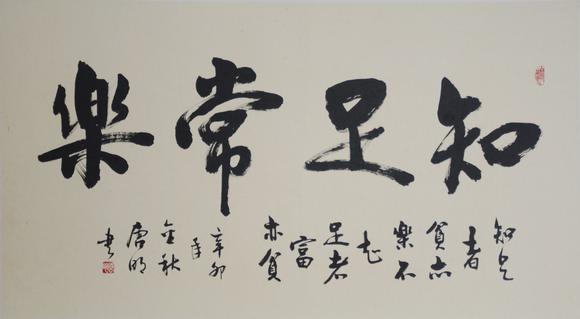 知足常樂
知足
者
貧亦
樂不
知
足者
富
亦貧
辛卯
年
金秋
唐明
书